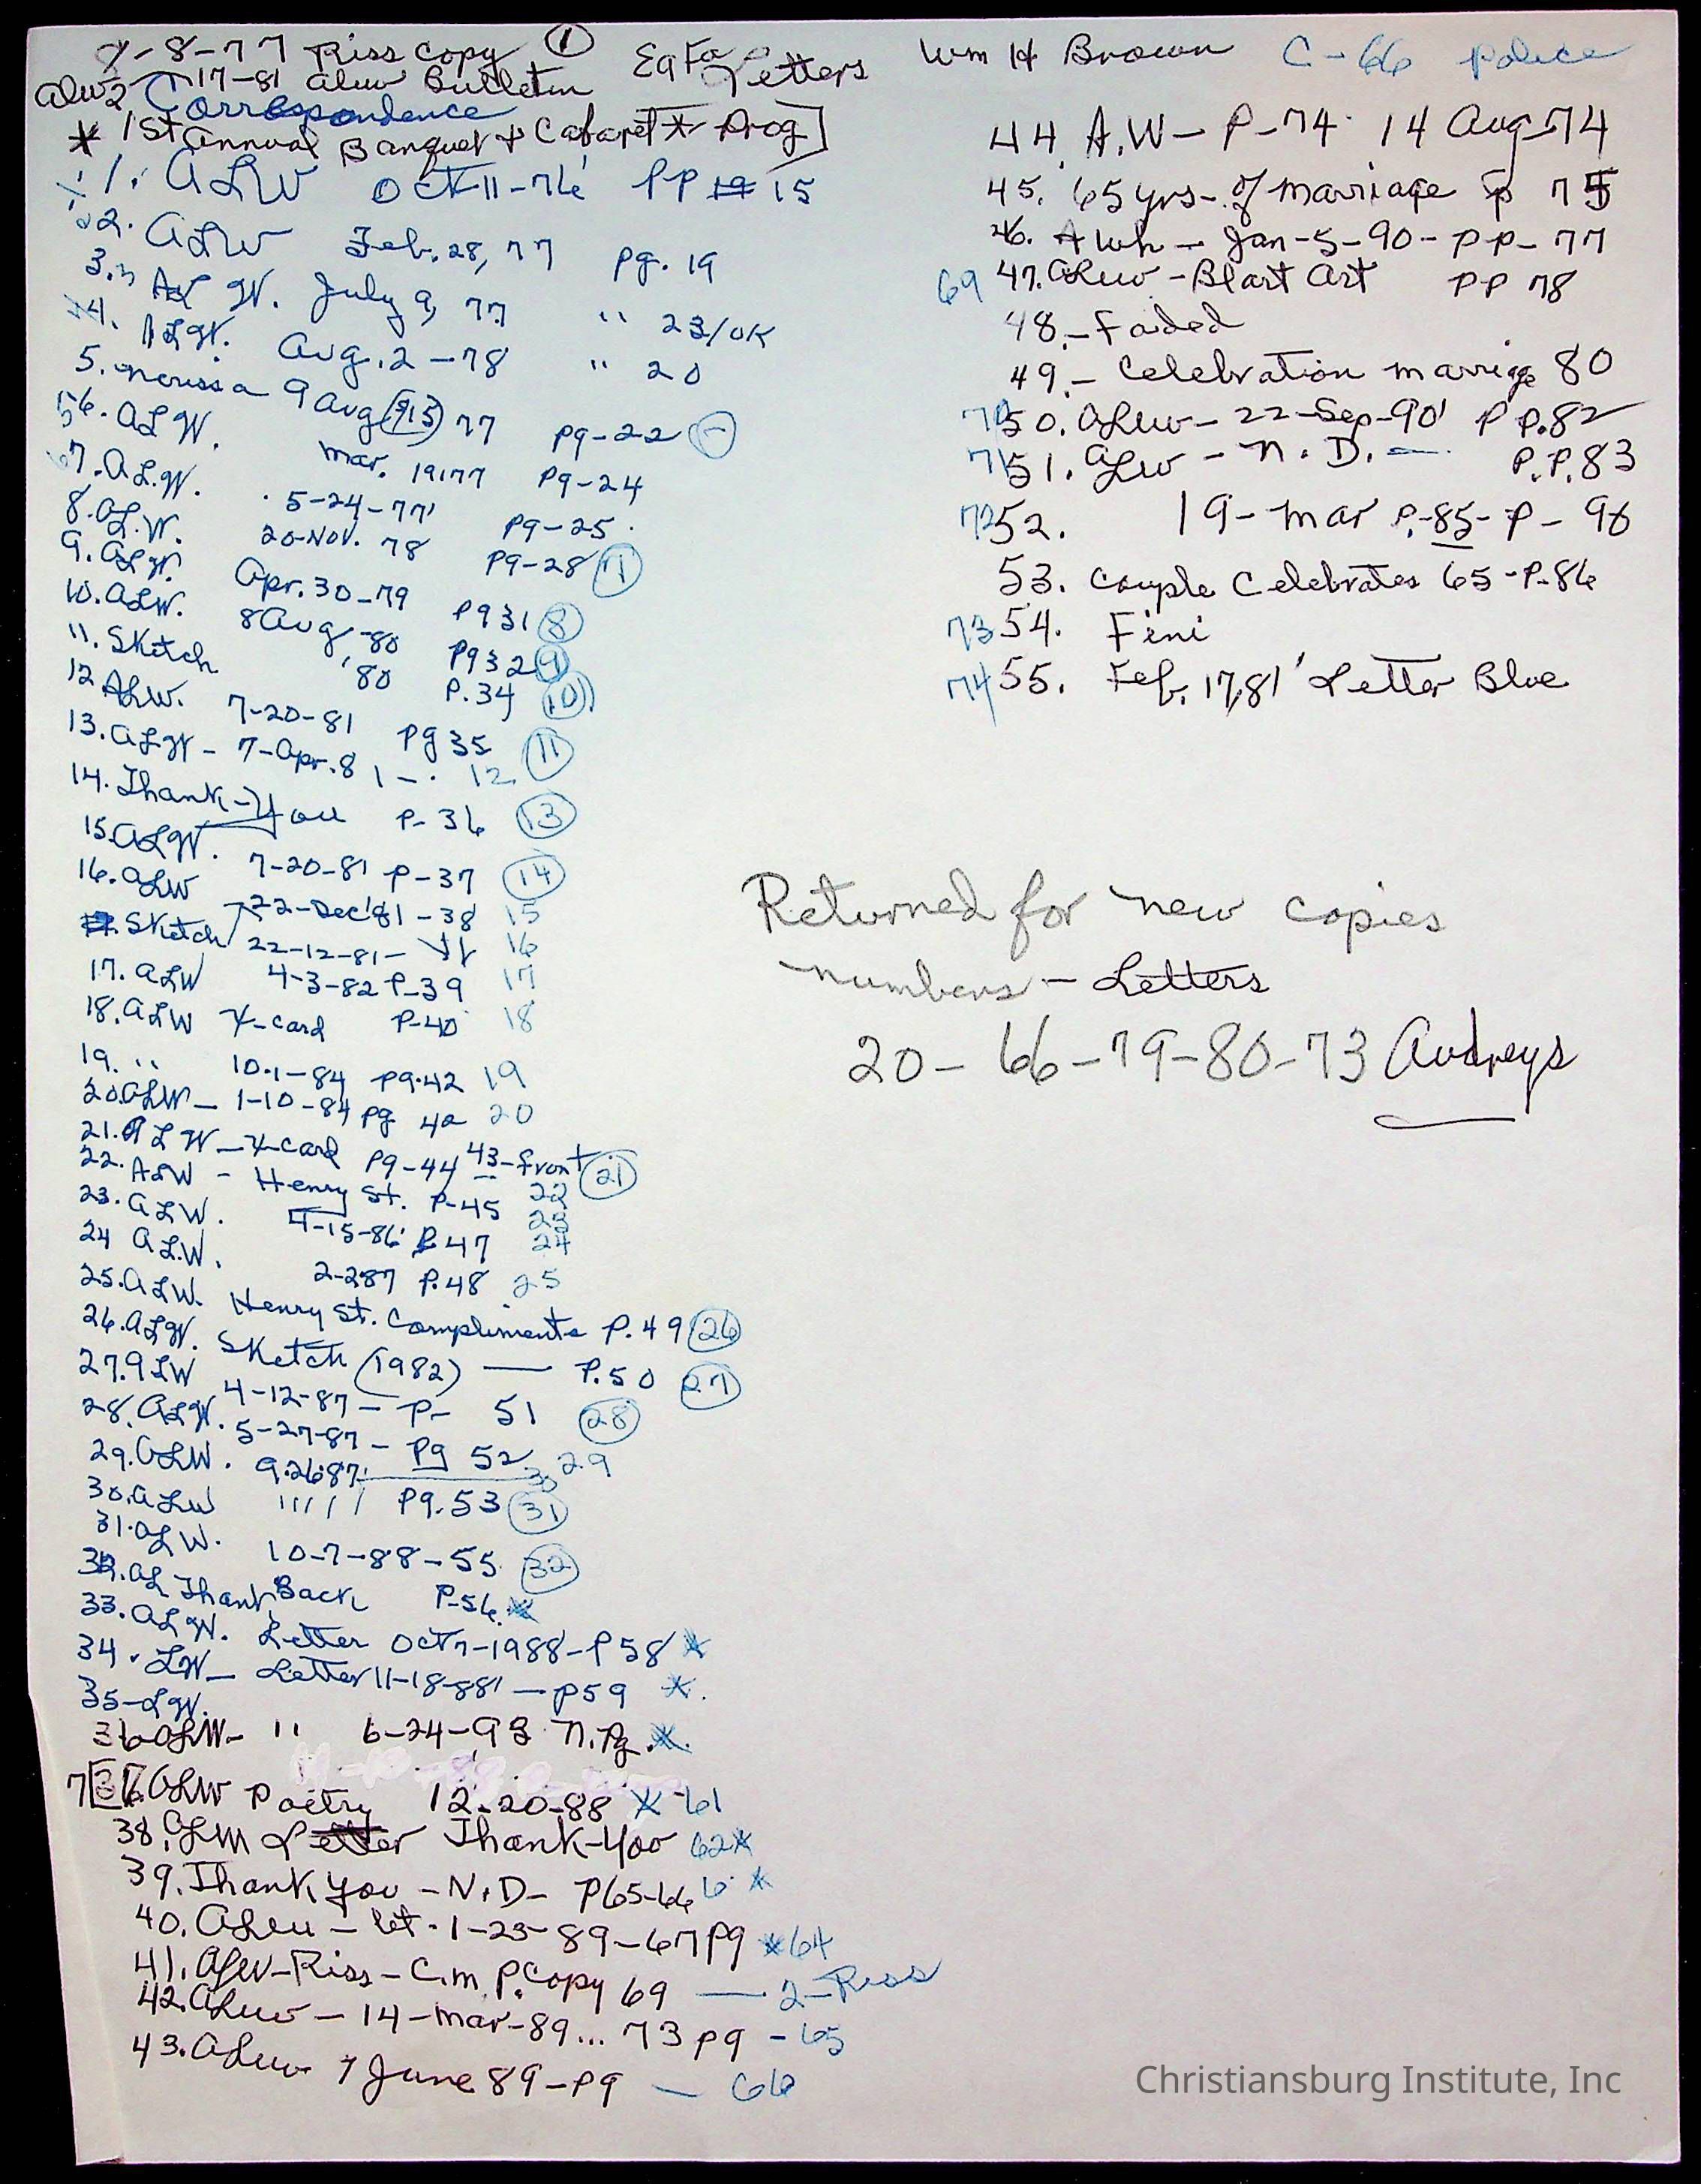 7-8-77 Riss Copy ①
ALW 2 17-81 ALW Bulletin
Letters
Wm H Brown C-66 Police
Correspondence
* 1st Annual Banquet & Cabaret * Prog]
1. ALW Oct-11-76' PP 15
2. ALW Feb. 28, 77 pg. 19
3. ALW. July 9, 77 " 23/OK
4. ALW. Aug. 2-78 " 20
5. Nerissa 9 Aug 77 pg-22
6. ALW. Mar. 1977 pg-24
7. A.L.W. 5-24-77' pg-25.
8. A.L.W. 20-Nov. 78 pg-28
9. ALW. Apr. 30-79 pg 31 ⑧
10. ALW. 8 Aug,-80 pg 32 ⑨
11. Sketch '80 P.34 ⑩
12 ALW. 7-20-81 pg 35 ⑪
13. ALW - 7-Apr. 81 -. 12
14. Thank-You P-36 ⑬
15. ALW. 7-20-81 P-37 ⑭
16. ALW 22-Dec'81-38 15
Sketch 22-12-81- 16
17. ALW 4-3-82 P-39 17
18. ALW X-card P-40 18
19. " 10-1-84 pg.42 19
20. ALW- 1-10-84 pg 42 20
21. ALW-X-card pg-44 43-front ㉑
22. ALW - Henry St. P-45 22
23. ALW. 4-15-86' P 47 23
24 24 A.L.W. 2-287 P.48 25
25. ALW. Henry St. Compliments P.49 ㉖
26. ALW. Sketch (1982) — P.50 ㉗
27. ALW 4-12-87- P- 51 ㉘
28. ALW. 5-27-87- Pg 52 29
29. ALW. 9.26.87. 30
30. ALW " " " Pg.53 ㉛
31. ALW. 10-7-88-55 ㉜
32. AL Thank Back P-56 *
33. ALW. Letter Oct 7-1988-P58 *
34. LW- Letter 11-18-88'-P59 *.
35-LW.
36 ALW- " 6-24-93 N.Pg. *.
7 36. ALW Poetry 12-20-88 * -61
38. ALW Letter Thank-You 62 *
39. Thank You -N.D- P65-66 *
40. ALW - let. 1-23-89-67 pg * 64
41. ALW-Riss-C.M.P. Copy 69 — 2-Riss
42. ALW - 14-Mar-89... 73 pg - 65
43. ALW 7 June 89-pg - 66
44. A.W- P-74. 14 Aug-74
45. 65 yrs-of Marriage p 75
46. Alwh - Jan-5-90- PP- 77
69 47. ALW -Blart Art PP 78
48.-Faided
49.- Celebration marrige 80
70 50. ALW- 22-Sep-90' P P.82
71 51. ALW - N.D.- P.P.83
72 52. 19- Mar P.-85-P- 90
53. Couple Celebrates 65-P-86
73 54. Fini
74 55. Feb. 17,81' Letter Blue
Returned for new copies
numbers - Letters
20- 66-79-80-73 Audreys
Christiansburg Institute, Inc